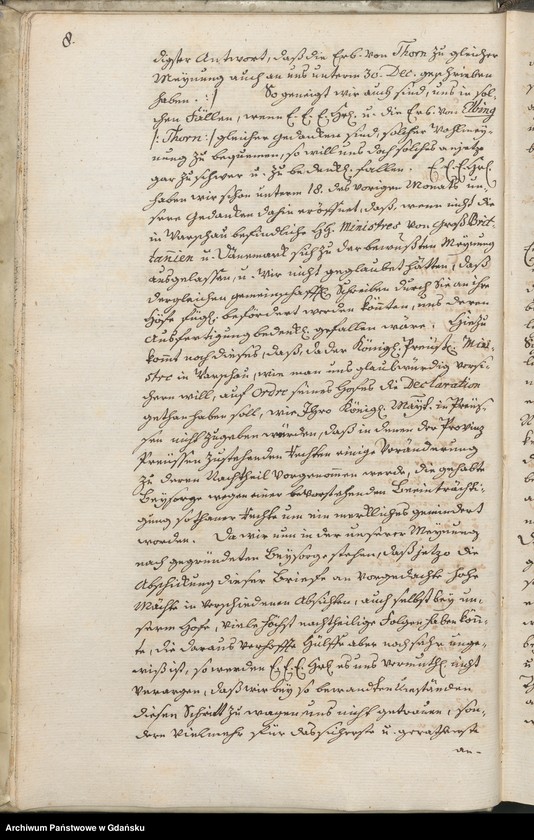 8.
digster Antwort, daß die Erb. von Thorn zu gleicher
Meynung auch an uns unterm 30. Dec. geschrieben
haben. :/ So geneigt wir auch sind, uns in sol-
chen Fällen, wenn E. E. E. Hrl. u. die Erb. von Elbing
/: Thorn :/ gleicher Gedancken sind, solcher Wohlmey-
nung zu bequemen, so will uns doch solches anjetzo
gar zu schwer u. zu bedenckl. fallen. E. E. E. Hrl.
haben wir schon unterm 18. des vorigen Monats un-
sere Gedancken dahin eröffnet, daß, wenn nicht die
in Warschau befindliche HH. Ministres von Groß Brit-
tannien u. Dänemarck sich zu der bewußten Meynung
ausgelassen, u. Wir nicht geglaubet hätten, daß
dergleichen gemeinschafftl. Schreiben durch Sie an ihre
Höfe fügl. befördert werden könten, uns deren
Ausfertigung bedenckl. gefallen wäre. Hiezu
kommt noch dieses, daß, da der Königl. Preuß. Mini-
stre in Warschau, wie man uns glaubwürdig versi-
chern will, auf Ordre seines Hofes die Declaration
gethan haben soll, wie Ihro Königl. Mayt. in Preus-
sen nicht zugeben würden, daß in denen der Provinz
Preussen zustehenden Rechten einige Veränderung
zu deren Nachtheil vorgenommen werde, die gehabte
Beysorge wegen einer bevorstehenden Beeinträchti-
gung sothaner Rechte um ein merckliches gemindert
worden. Da wir nun in der unserer Meynung
nach gegründeten Beysorge stehen, daß jetzo die
Abschickung dieser Briefe an vorgedachte hohe
Mächte in verschiedenen Absichten, auch selbst bey un-
serm Hofe, viele höchst nachtheilige Folgen haben kön-
te, die daraus verhoffte Hülffe aber noch sehr unge-
wiß ist, so werden E. E. E. Hrl. es uns vermuthl. nicht
verargen, daß wir bey so bewandten Umständen
diesen Schritt zu wagen uns nicht getrauen, son-
dern vielmehr für das sicherste u. gerathenste
an-
Archiwum Państwowe w Gdańsku